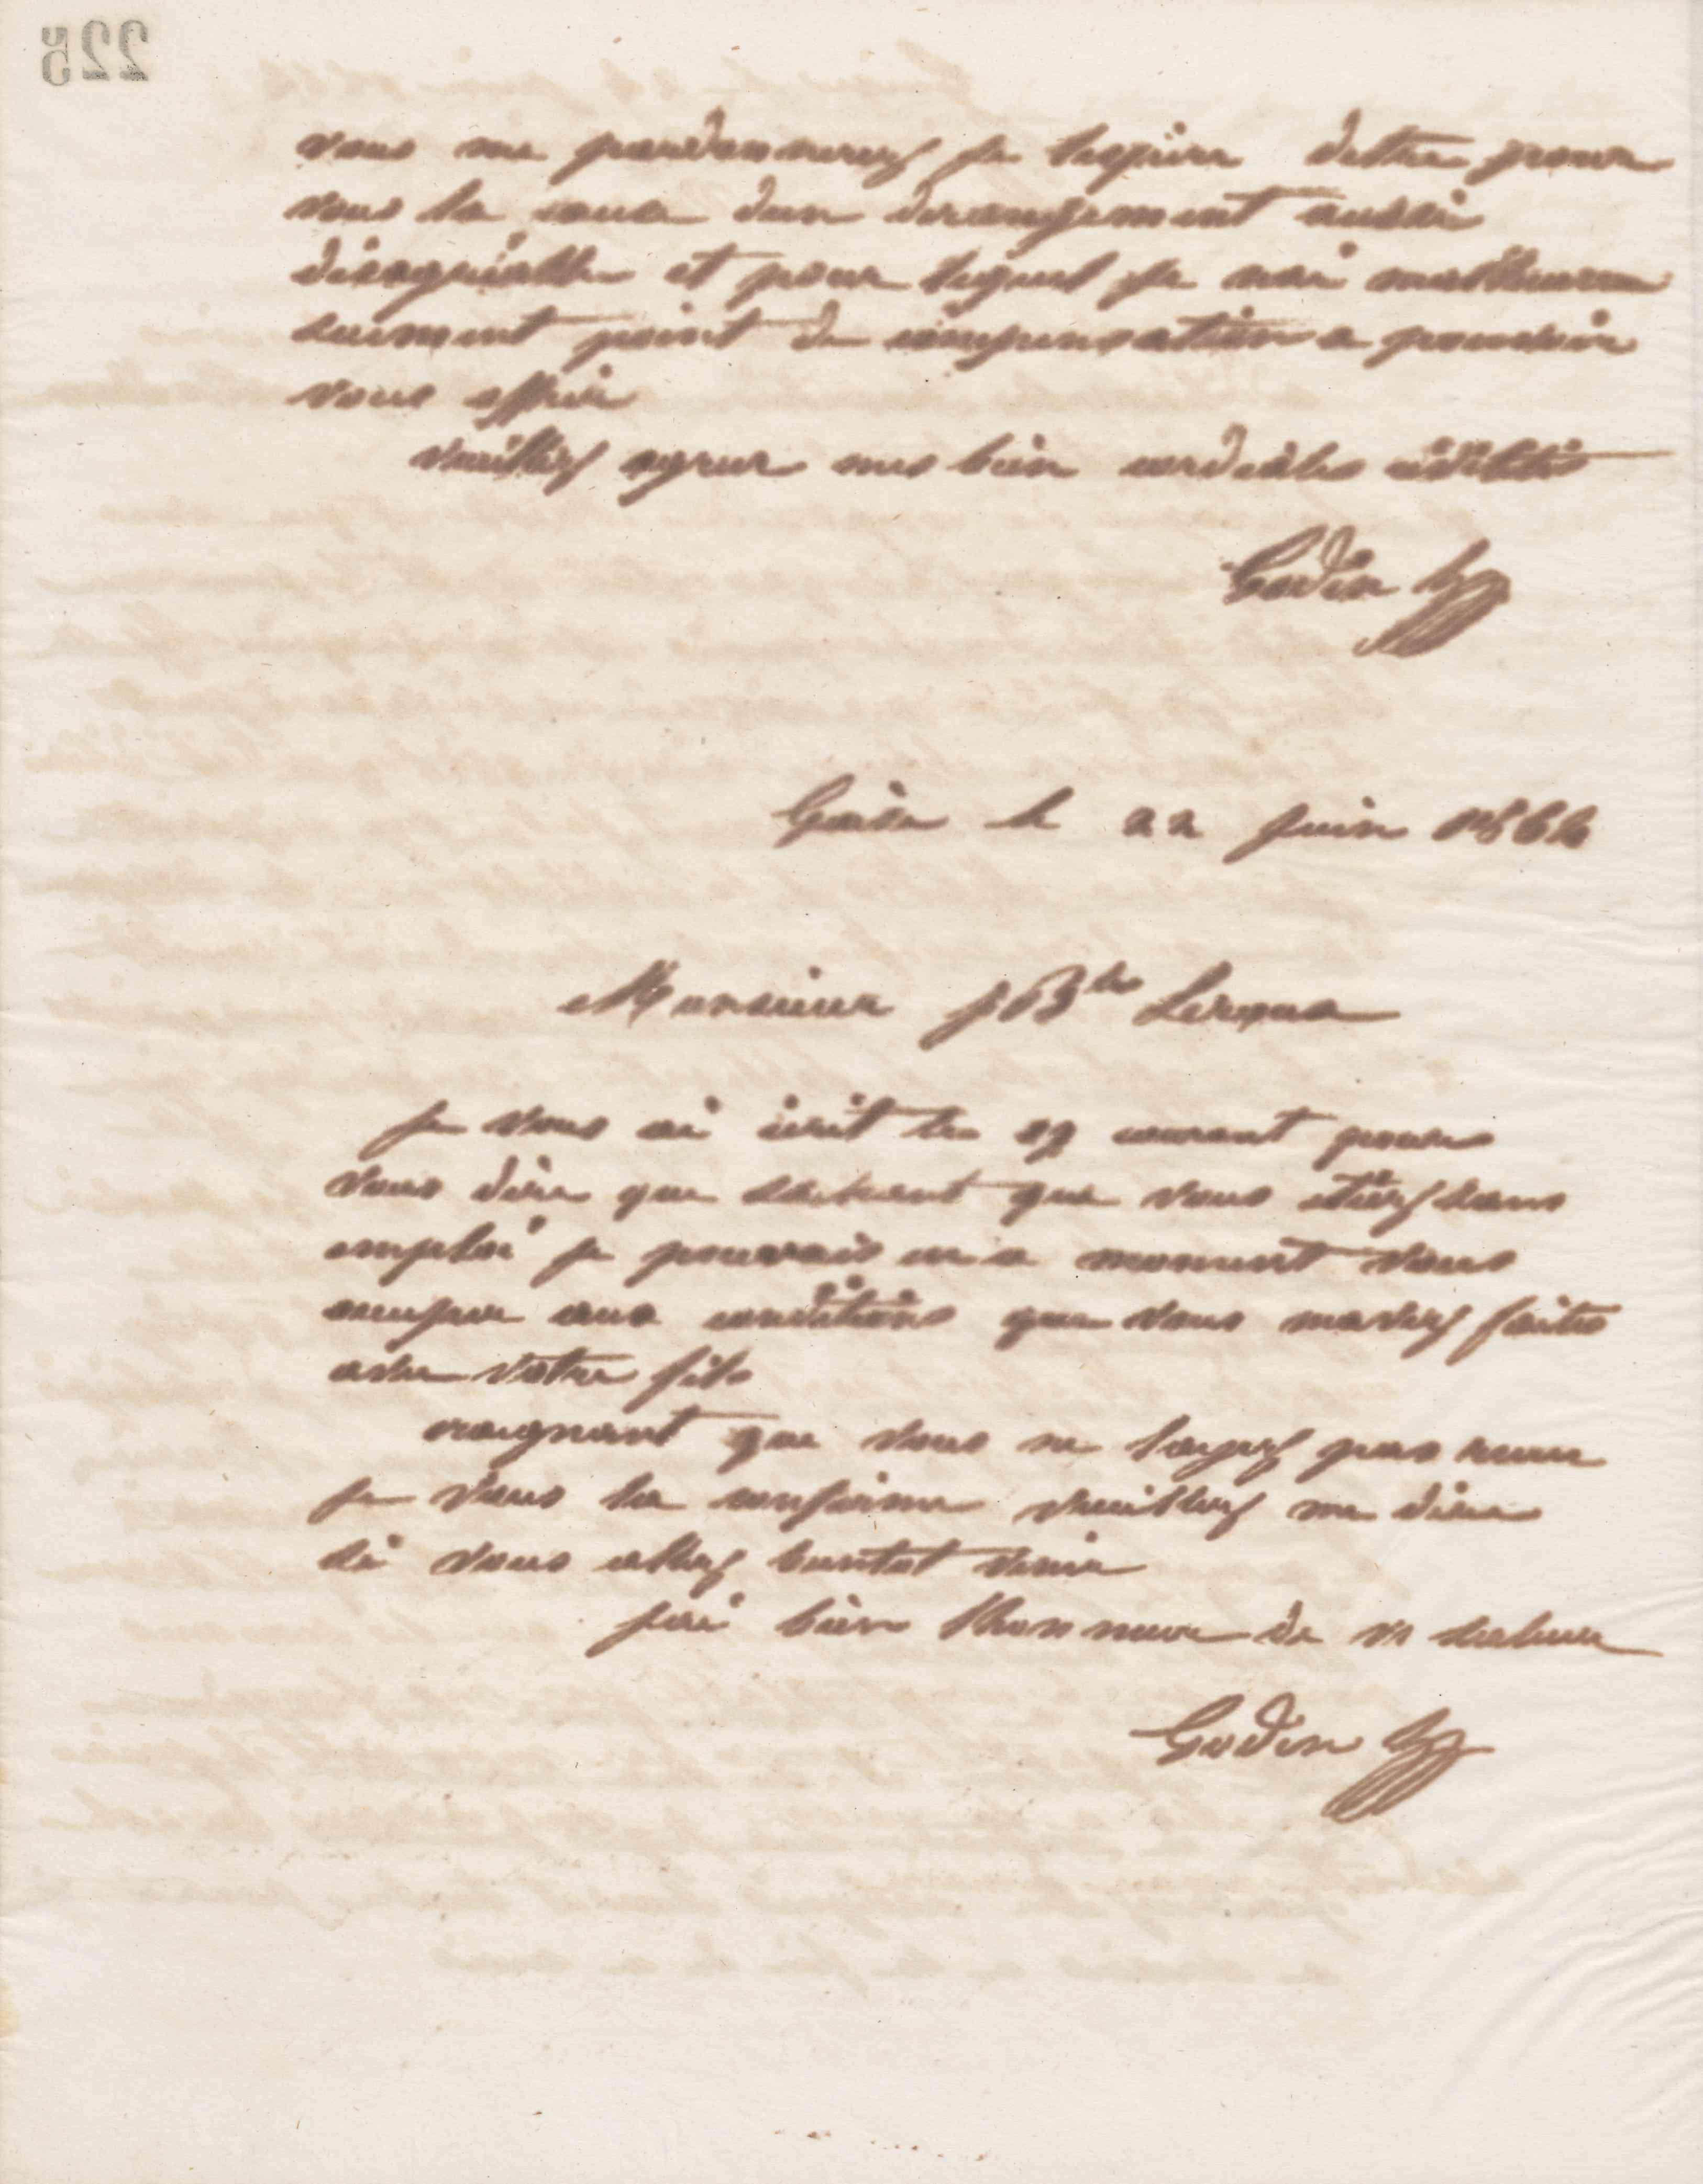 225
vous me pardonnerez je lespère detre pour
vous la cause dun derangement aussi
désagréable et pour lequel je nai malheureu
sement point de compensation a pouvoir
vous offrir
veuillez agreer mes bien cordiales civilités
Godin
Guise le 22 juin 1866
Monsieur J Bte Leroux
je vous ai écrit le courant pour
vous dire que sachant que vous étiez sans
emploi je pouvais en ce moment vous
occuper aux conditions que vous maviez faites
avec votre fils
craignant que vous ne layez pas recue
je vous la confirme veuillez me dire
si vous allez bientot venir
jai bien lhonneur de vs saluer
Godin